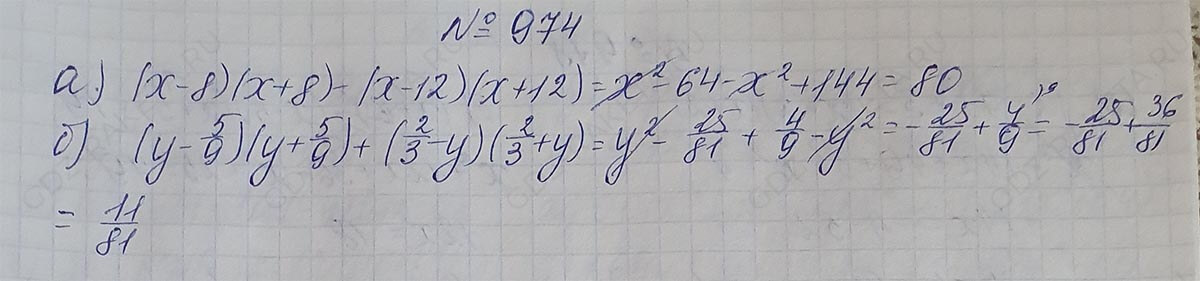 № 974
а) (x-8)(x+8)-(x-12)(x+12)=x²-64-x²+144=80
б) (y-5/9)(y+5/9)+(2/3-y)(2/3+y)=y²-25/81+4/9-y²=-25/81+4/9\9=-25/81+36/81
= 11/81